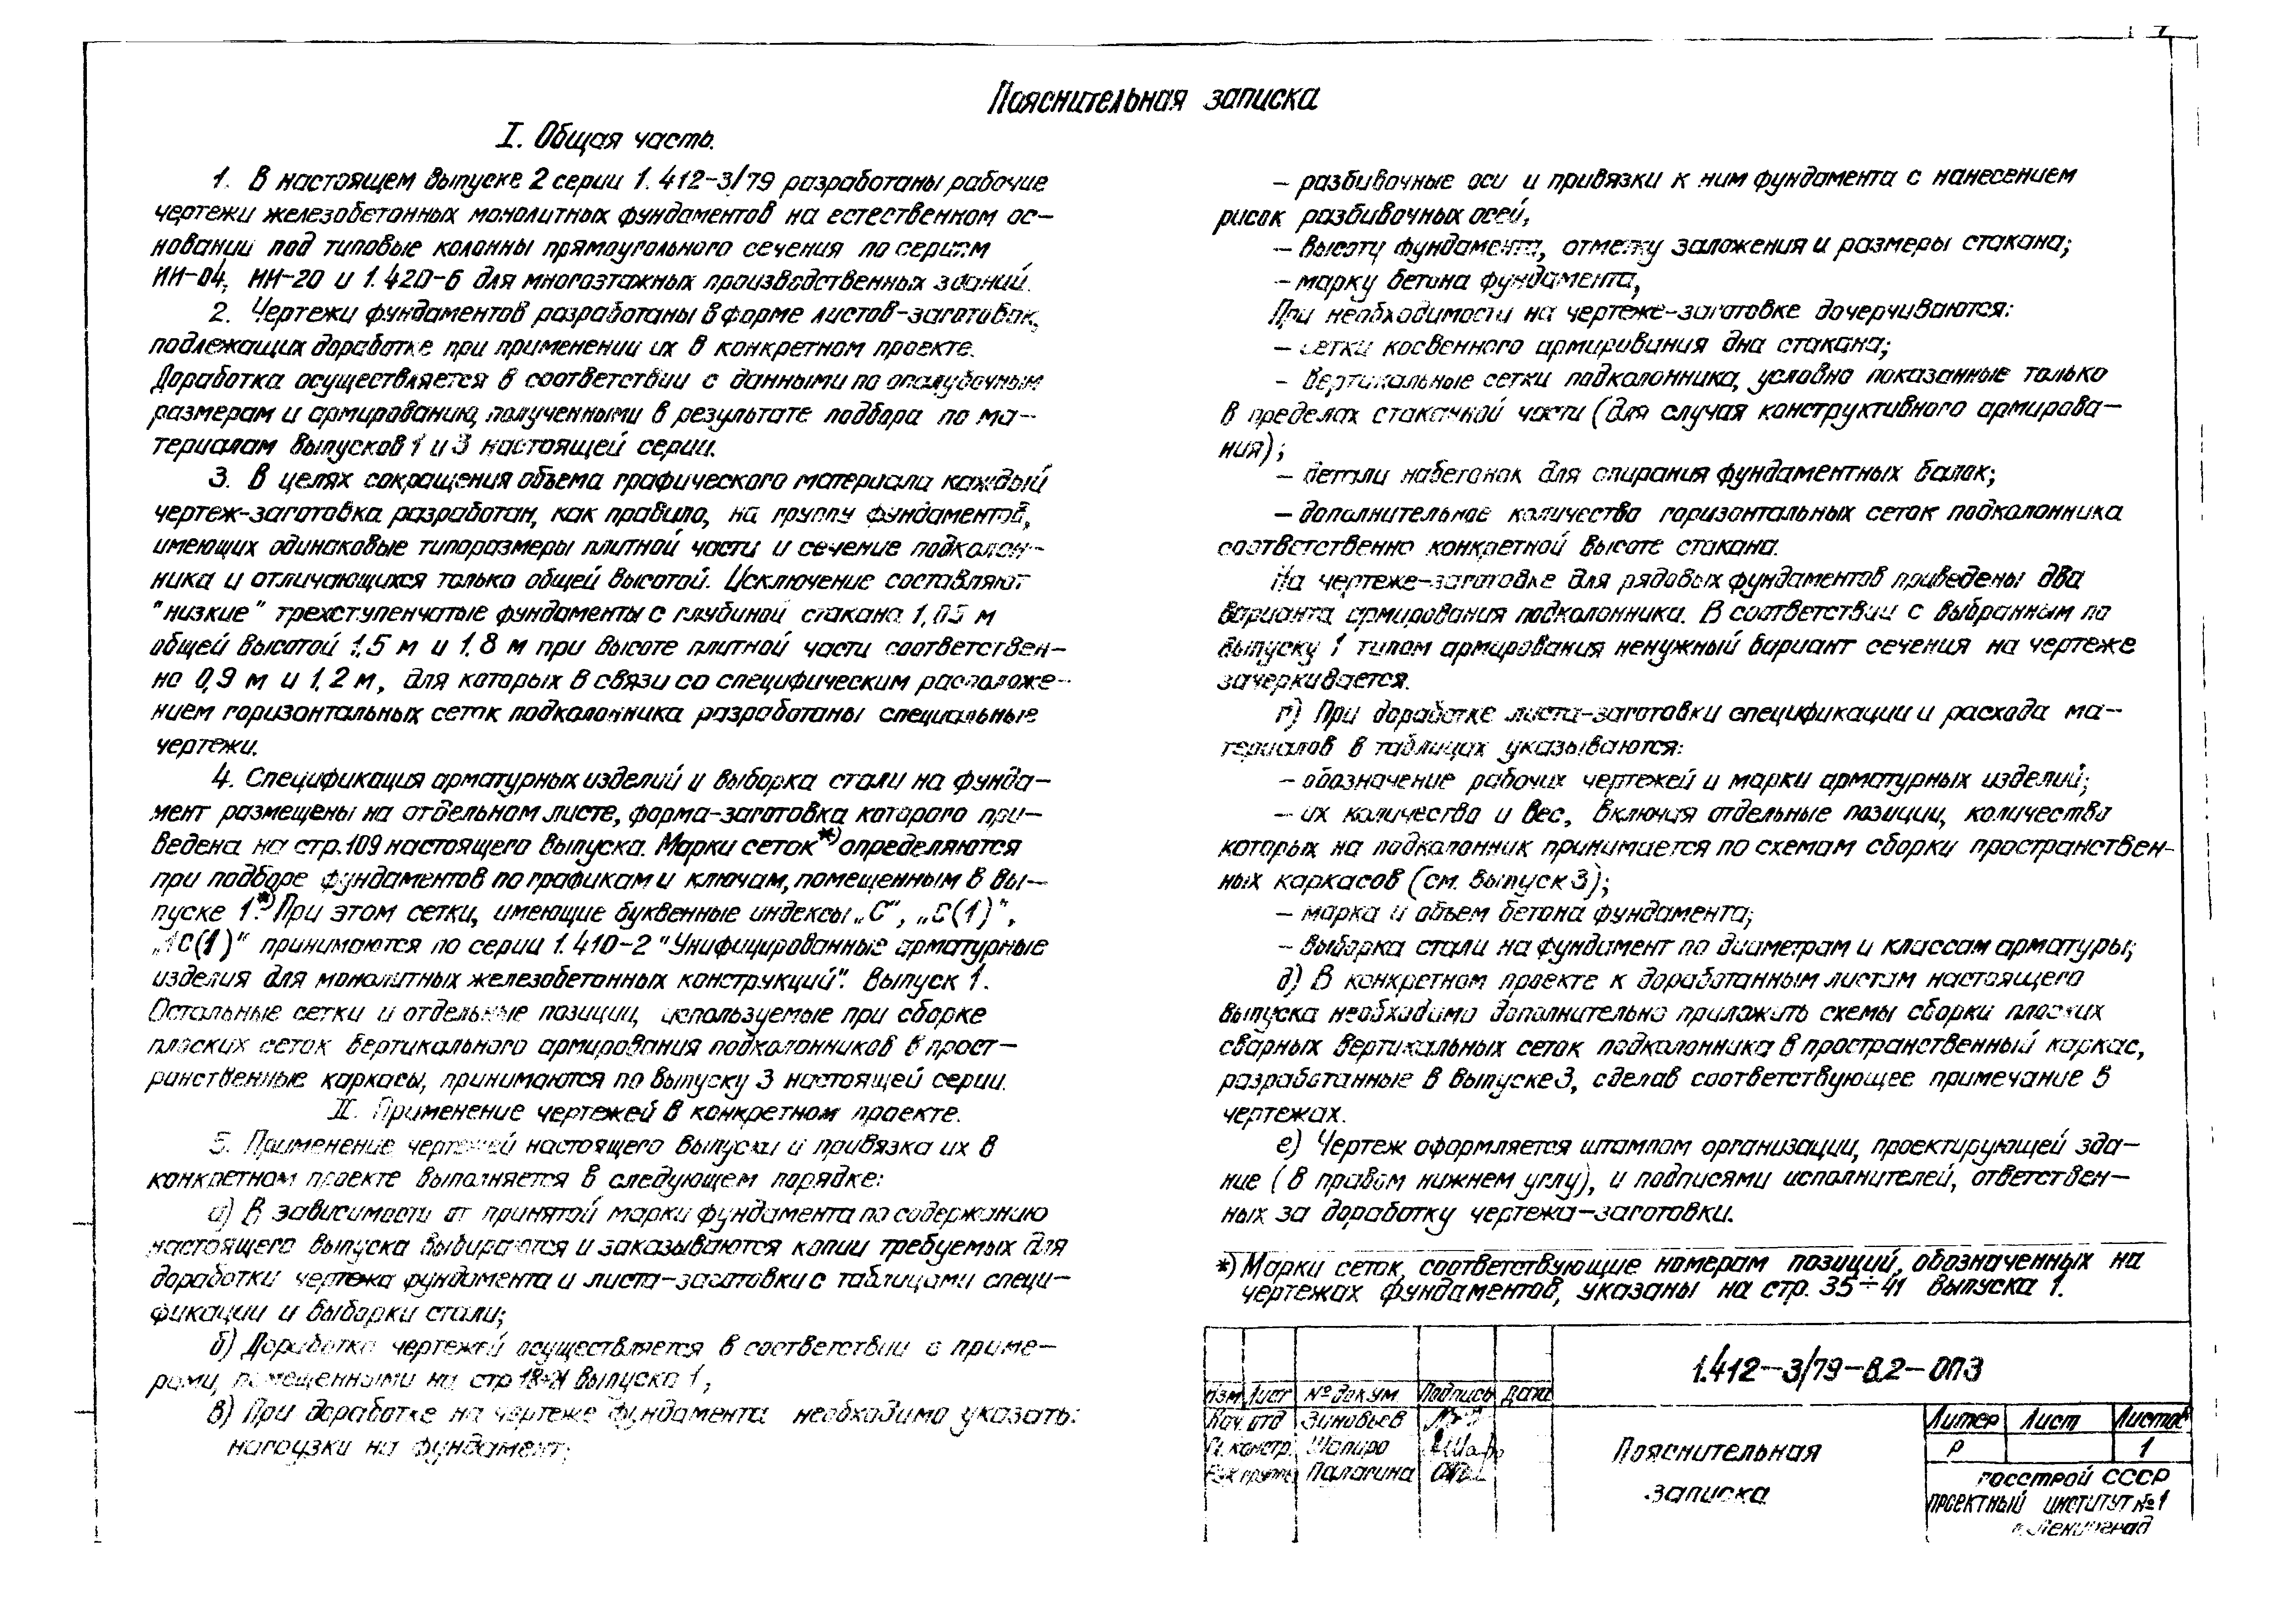 7
Пояснительная записка
I. Общая часть.
1. В настоящем выпуске 2 серии 1.412-3/79 разработаны рабочие
чертежи железобетонных монолитных фундаментов на естественном ос-
новании под типовые колонны прямоугольного сечения по сериям
ИИ-04, ИИ-20 и 1.420-6 для многоэтажных производственных зданий.
2. Чертежи фундаментов разработаны в форме листов-заготовок,
подлежащих доработке при применении их в конкретном проекте.
Доработка осуществляется в соответствии с данными по опалубочным
размерам и армированию, полученными в результате подбора по ма-
териалам выпусков 1 и 3 настоящей серии.
3. В целях сокращения объема графического материала каждый
чертеж-заготовка разработан, как правило, на группу фундаментов,
имеющих одинаковые типоразмеры плитной части и сечение подколон-
ника и отличающихся только общей высотой. Исключение составляют
"низкие" трехступенчатые фундаменты с глубиной стакана 1,05 м
общей высотой 1,5 м и 1,8 м при высоте плитной части соответствен-
но 0,9 м и 1,2 м, для которых в связи со специфическим расположе-
нием горизонтальных сеток подколонника разработаны специальные
чертежи.
4. Спецификация арматурных изделий и выборка стали на фунда-
мент размещены на отдельном листе, форма-заготовка которого при-
ведена на стр. 109 настоящего выпуска. Марки сеток *) определяются
при подборе фундаментов по графикам и ключам, помещенным в вы-
пуске 1.*) При этом сетки, имеющие буквенные индексы „С", „С(1)",
„1С(1)" принимаются по серии 1.410-2 "Унифицированные арматурные
изделия для монолитных железобетонных конструкций". Выпуск 1.
Остальные сетки и отдельные позиции, используемые при сборке
плоских сеток вертикального армирования подколонников в прост-
ранственные каркасы, принимаются по выпуску 3 настоящей серии.
II. Применение чертежей в конкретном проекте.
5. Применение чертежей настоящего выпуска и привязка их в
конкретном проекте выполняется в следующем порядке:
а) В зависимости от принятой марки фундамента по содержанию
настоящего выпуска выбираются и заказываются копии требуемых для
доработки чертежа фундамента и листа-заготовки с таблицами специ-
фикации и выборки стали;
б) Доработка чертежей осуществляется в соответствии с приме-
рами, помещенными на стр выпуска 1;
в) При доработке на чертеже фундамента необходимо указать:
нагрузки на фундамент;
- разбивочные оси и привязки к ним фундамента с нанесением
рисок разбивочных осей;
- высоту фундамента, отметку заложения и размеры стакана;
- марку бетона фундамента,
При необходимости на чертеже-заготовке дочерчиваются:
- сетки косвенного армирования дна стакана;
- вертикальные сетки подколонника, условно показанные только
в пределах стаканной части (для случая конструктивного армирова-
ния);
- детали набетонок для опирания фундаментных балок;
- дополнительное количество горизонтальных сеток подколонника
соответственно конкретной высоте стакана.
На чертеже-заготовке для рядовых фундаментов приведены два
варианта армирования подколонника. В соответствии с выбранным по
выпуску 1 типом армирования ненужный вариант сечения на чертеже
зачеркивается.
г) При доработке листа-заготовки спецификации и расхода ма-
териалов в таблицах указываются:
- обозначение рабочих чертежей и марки арматурных изделий;
- их количество и вес, включая отдельные позиции, количество
которых на подколонник принимается по схемам сборки пространствен-
ных каркасов (см. выпуск 3);
- марка и объем бетона фундамента;
- выборка стали на фундамент по диаметрам и классам арматуры;
д) В конкретном проекте к доработанным листам настоящего
выпуска необходимо дополнительно приложить схемы сборки плоских
сварных вертикальных сеток подколонника в пространственный каркас,
разработанные в выпуске 3, сделав соответствующее примечание в
чертежах.
е) Чертеж оформляется штампом организации, проектирующей зда-
ние (в правом нижнем углу), и подписями исполнителей, ответствен-
ных за доработку чертежа-заготовки.
*) Марки сеток, соответствующие номерам позиций, обозначенных на
чертежах фундаментов, указаны на стр. 35÷41 выпуска 1.
1.412-3/79-В.2-ОПЗ
Изм Лист № докум Подпись Дата
Нач. отд Зиновьев
Гл. констр. Шапиро
Рук группы Палагина
Пояснительная
записка
Литер Лист Листов
Р 1
ГОССТРОЙ СССР
ПРОЕКТНЫЙ ИНСТИТУТ №1
г. Ленинград